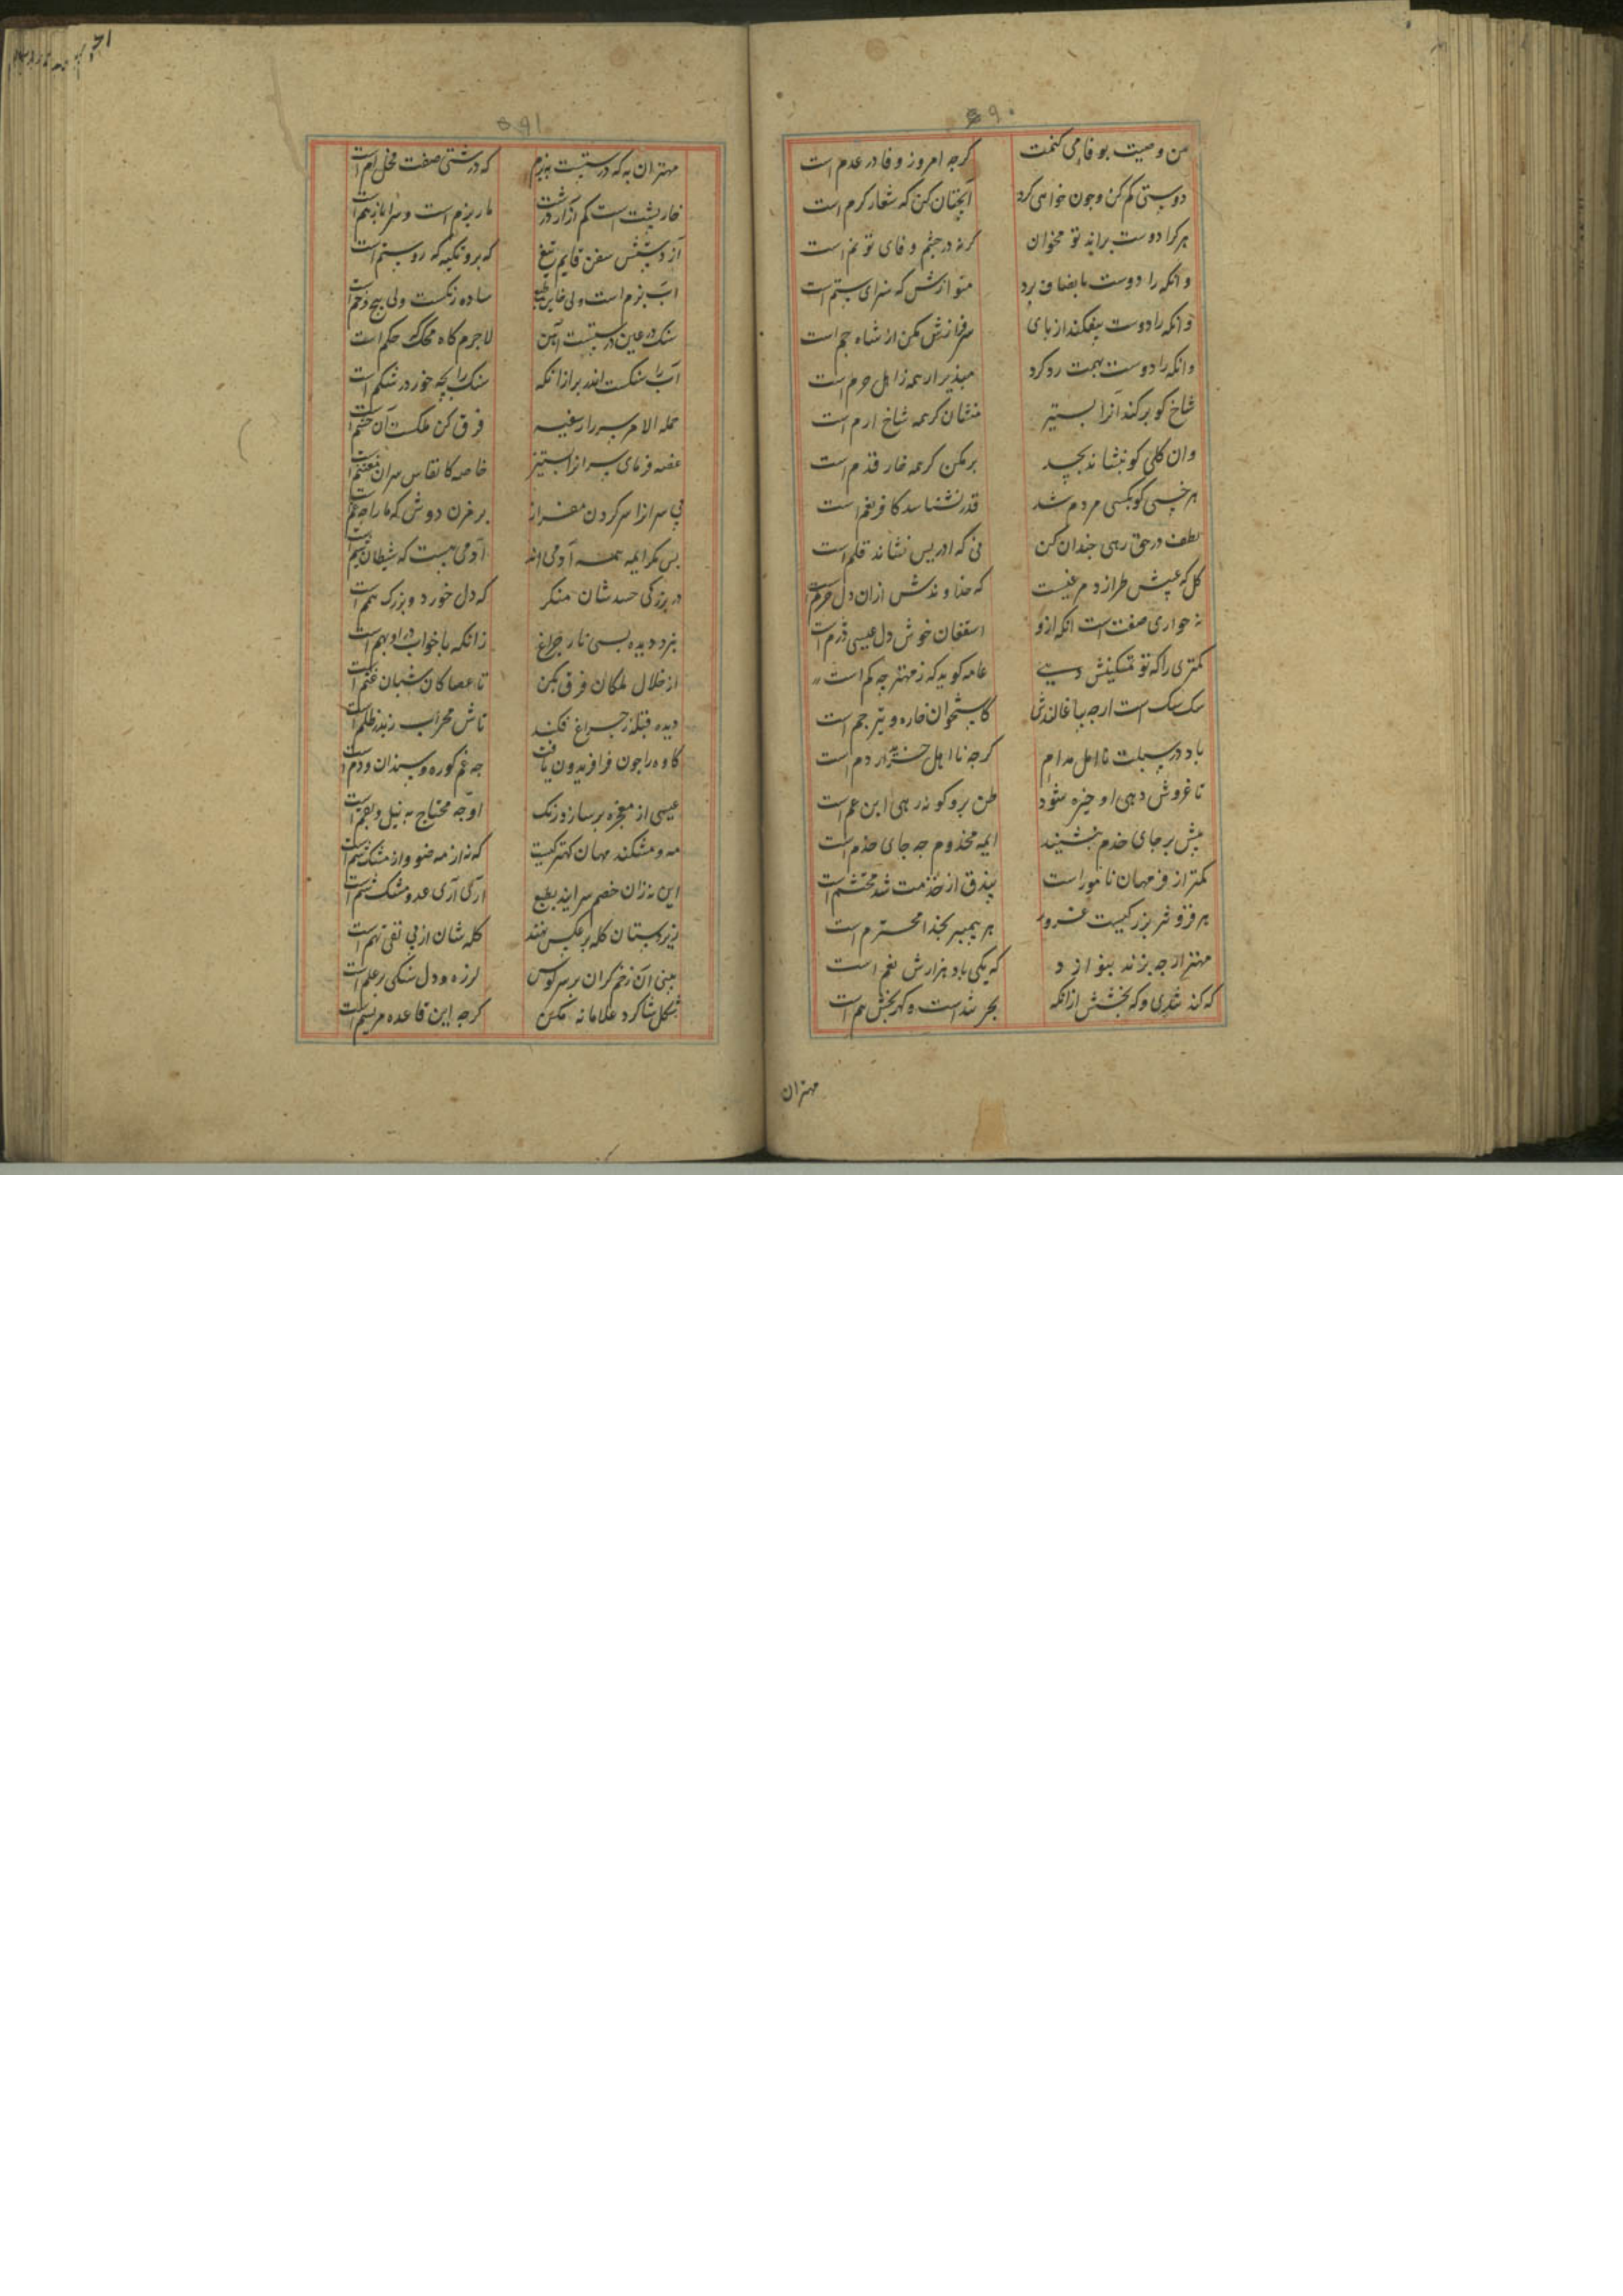 ۵۹۰
من وصیت بوفا می کنمت کرجه امروز وفا در عدم است
دوستی کم کن وجون خواهی کرد آنچنان کن که شعار کرم است
هرکرا دوست براند تو مخوان کرنه در چشم وفای تو نم است
وانکه را دوست بانصاف برد منوازش که سزای ستم است
وانکه را دوست بیفکند از بای سرفرازش مکن ار شاه جم است
وانکه را دوست بهمت رد کرد مپذیر ار همه ز اهل حرم است
شاخ کو برکند آنرا بستیز منشان کرهمه شاخ ارم است
وان کلی کو بنشاند بجد برمکن کرهمه خار قدم است
هر خسی کو بکسی مردم شد قدر نشناسد کافر نعم است
لطف در حق رهی جندان کن نی که ادریس نشاند قلم است
کل که عیسیش طرازد مرغیست که خداوندش ازان دل خرم است
نه حواری صفت است انکه ازو اسقفان خوش دل عیسی دژم است
کمتری را که تو تمکینش دهی عامه کوید که ز مهتر جه کم است
سک سک است ارجه بباغالندش کاستخوان خاره و تیر جم است
باد در سبلت نااهل مدام کرجه نااهل خریدار دم است
تا غروش دهی او خیره شود ظن برو کو نه رهی ابن عم است
پیش بر جای خدم بنشیند ایمه مخدوم جه جای خدم است
کمتر از فر مهان نامور است بیذق از خدمت شه محتشم است
هر فروتر بزرکیست غرور هر پیمبر بخدا محترم است
مهتر ارجه بزند بنوازد که یکی باد هزارش نعم است
که کند تندی و که بخشش ازانکه بحر تند است و کهربخش هم است
مهتران
۵۹۱
مهتران به که درستست ببزم که درشتی صفت فحل ام است
خارپشت است کم آزار درشت مار نرم است و سراپای سم است
از درستیش سفن قایم تیغ که برو تکیه که روستم است
آب نرم است ولی خاین طبع ساده رنکست ولی پیچ و خم است
سنک در عین درستیست امین لاجرم کاه محک حکم است
آب را سنکست اندر بر ازانکه سنک را بچه خور در شکم است
حمله الامر سررا رسفیه فرق کن ملکت آن محتشم است
غصه فرمای سرانرا بستیز خاصه کانفاس سران مغتنم است
بی سرانرا سرکردن مفراز بر خزن دوش که ما را جه غم است
بس مکو ایمه همه آدمی اند آدمی هست که شیطان شیم است
در بزرکی حسدشان منکر که دل خورد و بزرک همم است
نزد دیده بسی نار چراغ زانکه باخواب درو بهم است
از خلال ملکان فرق بکن تا عصا کان شبان غنم است
دیده قبله ز چراغ افکند تاش محراب زبند ظلم است
کاوه را جون فر افریدون یافت جه غم کوره و سندان و دم است
عیسی از معجزه برسازد رنک او جه محتاج به نیل و بقم است
مه و مشکند مهان کهتر کیست که نه از مه ضو واز مشک شم است
این نه زان خصم سراید بطبع آری آری عدو مشک شم است
زیردستان کله برعکس نهند کله شان از پی نفی تهم است
بینی آن زخم کران بر سر کوس لرزه و دل سنکی بر علم است
شکل شاکرد غلامانه مکن کرجه این قاعده مرتسم است